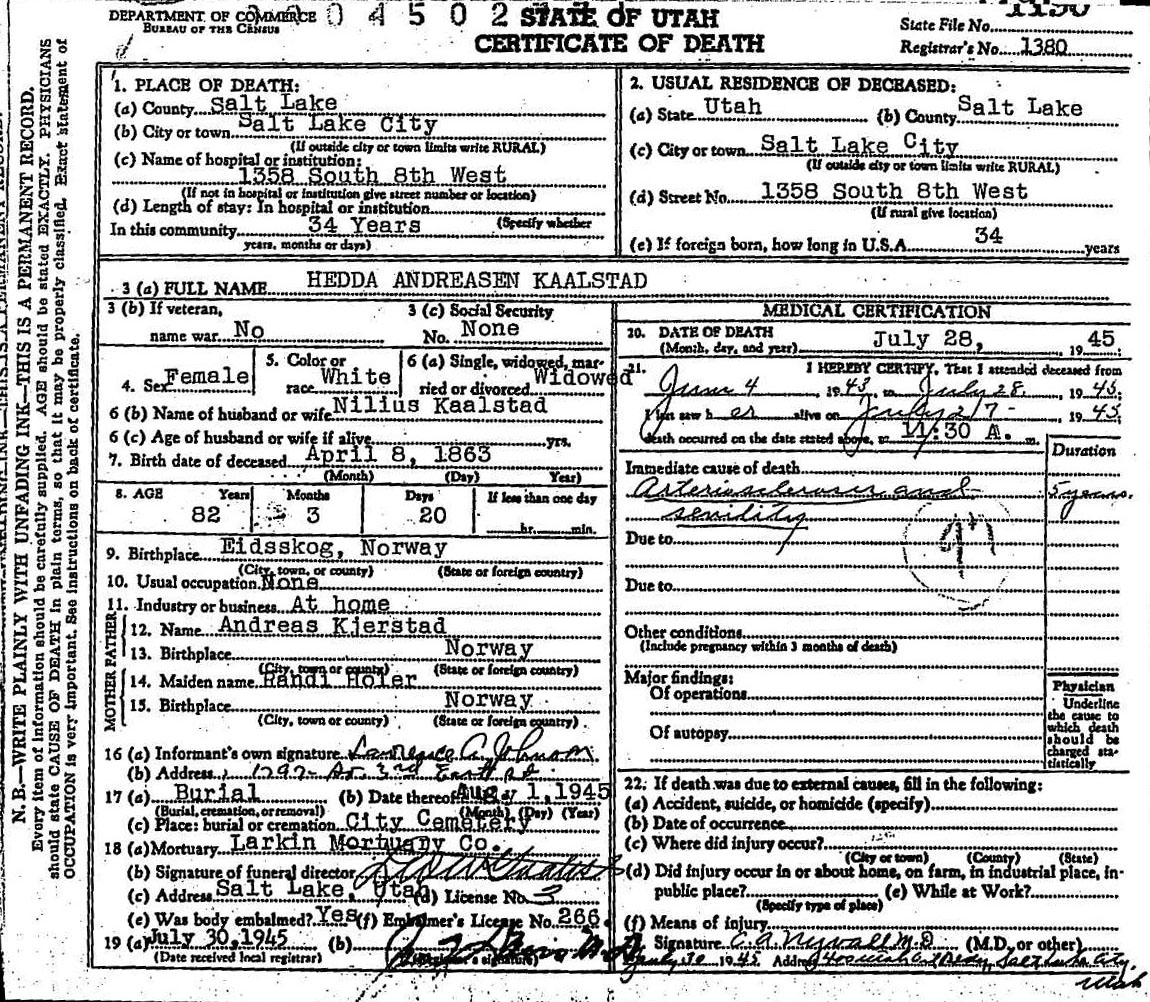 DEPARTMENT OF COMMERCE
BUREAU OF THE CENSUS
0 4 5 0 2
STATE OF UTAH
CERTIFICATE OF DEATH
State File No.
Registrar's No. 1380
N. B.—WRITE PLAINLY WITH UNFADING INK—THIS IS A PERMANENT RECORD.
Every item of information should be carefully supplied. AGE should be stated EXACTLY. PHYSICIANS
should state CAUSE OF DEATH in plain terms, so that it may be properly classified. Exact statement of
OCCUPATION is very important. See instructions on back of certificate.
1. PLACE OF DEATH:
(a) County Salt Lake
(b) City or town Salt Lake City
(If outside city or town limits write RURAL)
(c) Name of hospital or institution:
1358 South 8th West
(If not in hospital or institution give street number or location)
(d) Length of stay: In hospital or institution
(Specify whether
In this community 34 Years
years, months or days)
2. USUAL RESIDENCE OF DECEASED:
(a) State Utah (b) County Salt Lake
(c) City or town Salt Lake City
(If outside city or town limits write RURAL)
(d) Street No. 1358 South 8th West
(If rural give location)
(e) If foreign born, how long in U.S.A. 34 years
3 (a) FULL NAME HEDDA ANDREASEN KAALSTAD
3 (b) If veteran,
name war No
3 (c) Social Security
No. None
4. Sex Female
5. Color or
race White
6 (a) Single, widowed, mar-
ried or divorced Widowed
6 (b) Name of husband or wife Nilius Kaalstad
6 (c) Age of husband or wife if alive yrs.
7. Birth date of deceased April 8, 1863
(Month) (Day) Year)
8. AGE Years Months Days If less than one day
82 3 20 hr. min.
9. Birthplace Eidsskog, Norway
(City, town, or county) (State or foreign country)
10. Usual occupation None
11. Industry or business At home
FATHER
12. Name Andreas Kjerstad
13. Birthplace Norway
(City, town or county) (State or foreign country)
MOTHER
14. Maiden name Randi Holer
15. Birthplace Norway
(City, town or county) (State or foreign country)
16 (a) Informant's own signature Lawrence A. Johnson
(b) Address 3rd East St.
17 (a) Burial (b) Date thereof Aug 1, 1945
(Burial, cremation, or removal) (Month) (Day) (Year)
(c) Place: burial or cremation City Cemetery
18 (a) Mortuary Larkin Mortuary Co.
(b) Signature of funeral director
(c) Address Salt Lake, Utah (d) License No. 3
(e) Was body embalmed? Yes (f) Embalmer's License No. 266
19 (a) July 30, 1945 (b)
(Date received local registrar) (Registrar's signature)
MEDICAL CERTIFICATION
20. DATE OF DEATH
(Month, day, and year) July 28, 1945
21. I HEREBY CERTIFY, That I attended deceased from
June 4, 1943, to July 28, 1945
I last saw her alive on July 27 1945
death occurred on the date stated above, at 11:30 A. m.
Duration
Immediate cause of death
Arteriosclerosis and 5 years.
senility
Due to
Due to
Other conditions
(Include pregnancy within 3 months of death)
Major findings:
Of operations
Of autopsy
Physician
Underline
the cause to
which death
should be
charged sta-
tistically
22. If death was due to external causes, fill in the following:
(a) Accident, suicide, or homicide (specify)
(b) Date of occurrence
(c) Where did injury occur?
(City or town) (County) (State)
(d) Did injury occur in or about home, on farm, in industrial place, in-
public place? (e) While at Work?
(Specify type of place)
(f) Means of injury
Signature C. A. Nyvall M.D. (M.D. or other)
July 30 1945 Address Salt Lake City,
Utah